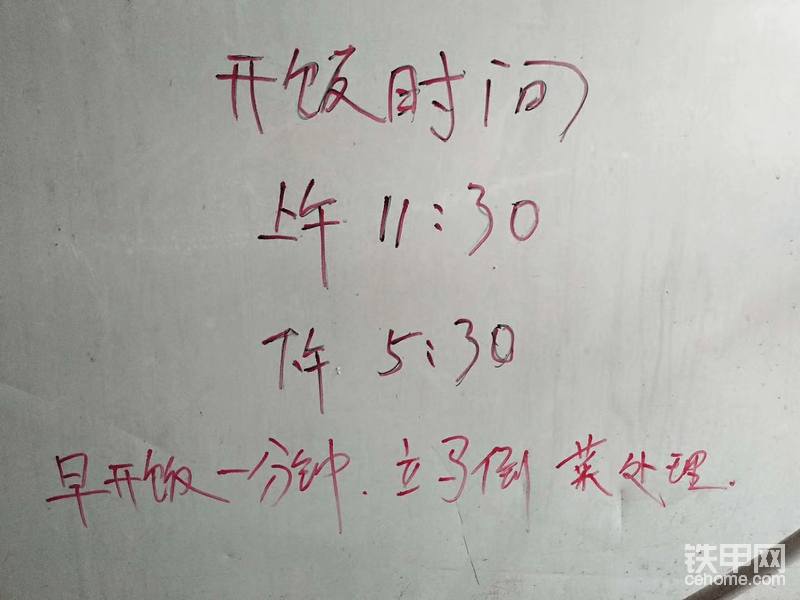 开饭时间
上午 11:30
下午 5:30
早开饭一分钟.立马倒菜处理.
铁甲网
cehome.com